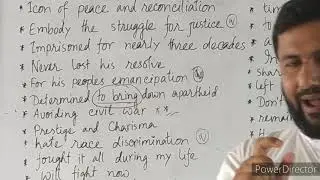 * Icon of peace and reconciliation
* Embody the struggle for justice (IV)
* Imprisoned for nearly three decades
* Never lost his resolve
* For his peoples emancipation (N)
* Determined to bring down apartheid
* Avoiding civil war **
* Prestige and Charisma
* hate race discrimination (IV)
* fought it all during my life
Will fight now
* tim
*
*
* a
* In
shar
left
* Don'
remain
* H
PowerDirector